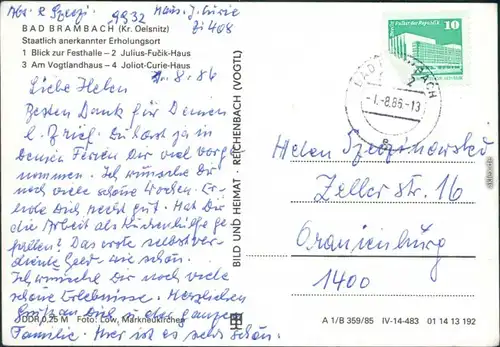 Abs. R Szczep. 9932 Haus J. Curie
Zi 408
BAD BRAMBACH (Kr. Oelsnitz)
Staatlich anerkannter Erholungsort
1 Blick zur Festhalle – 2 Julius-Fučik-Haus
3 Am Vogtlandhaus – 4 Joliot-Curie-Haus
1.8.86
Liebe Helen
Besten Dank für Deinen
l. Brief. Du hast ja in
Deinen Ferien Dir viel vorge
nommen. Ich wünsche Dir
noch viele schöne Wochen. Er-
hole Dich recht gut. Hat Dir
die Arbeit als Küchenhilfe ge-
fallen? Das erste selbstver-
diente Geld – wie schön.
Ich wünsche Dir noch viele
schöne Erlebnisse. Herzlichen
Gruß an Dich u. der ganzen
Familie. Hier ist es sehr schön.
DDR 0,25 M Foto: Löw, Markneukirchen
BILD UND HEIMAT · REICHENBACH (VOGTL)
10
Palast der Republik
DDR
BAD BRAMBACH
2
-1.-8.86.-13
Helen
Zeller str. 16
Oranienburg
1400
A 1/B 359/85 IV-14-483 01 14 13 192